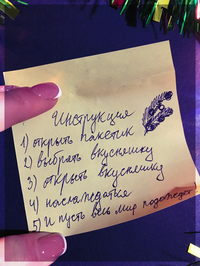 Инструкция
1) открыть пакетик
2) выбрать вкусняшку
3) открыть вкусняшку
4) наслаждаться
5) И пусть весь мир подождёт